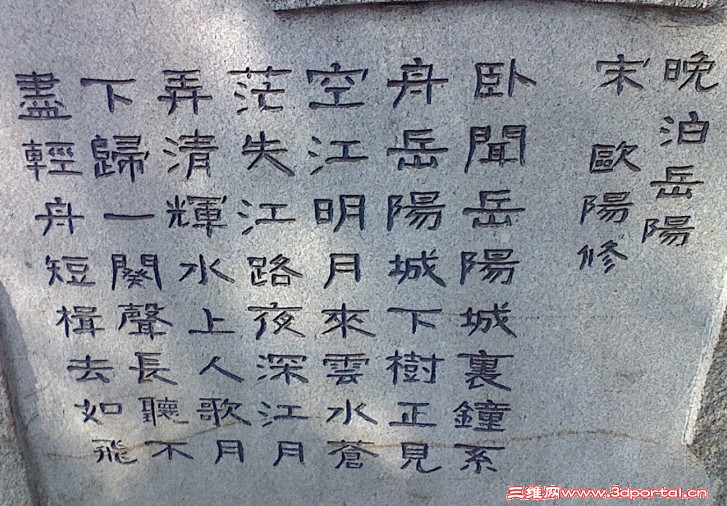 晚泊岳陽
宋 歐陽修
卧聞岳陽城裏鐘系
舟岳陽城下樹正見
空江明月來雲水蒼
茫失江路夜深江月
弄清輝水上人歌月
下歸一闋聲長聽不
盡輕舟短楫去如飛
三维网www.3dportal.cn